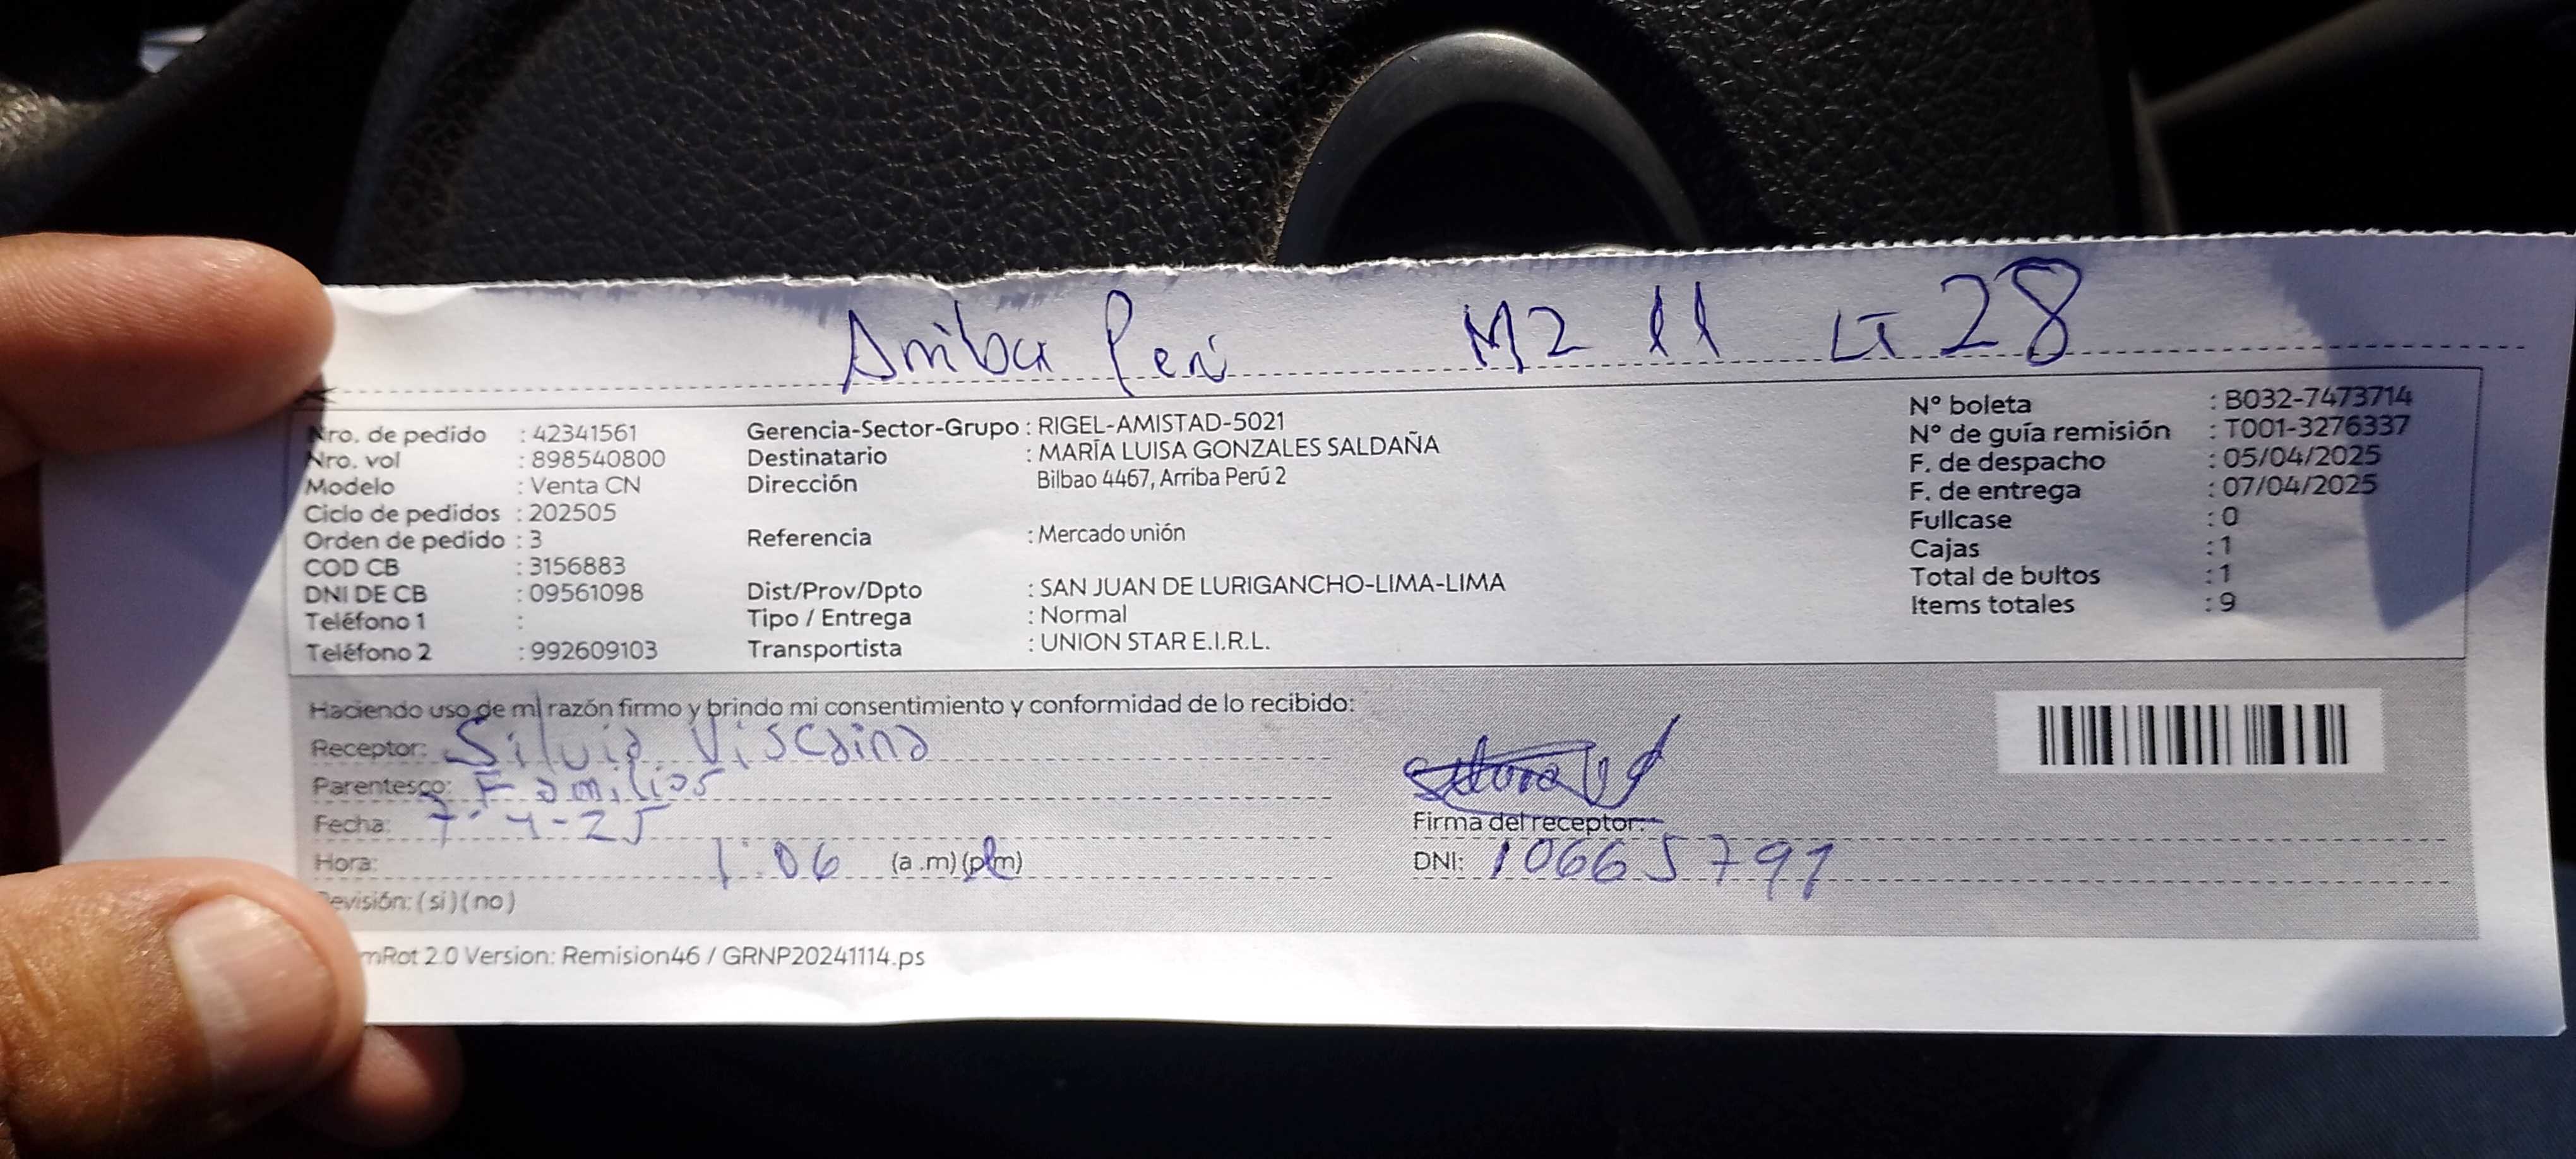 Arriba Perú MZ 11 LT 28
Nro. de pedido : 42341561
Nro. vol : 898540800
Modelo : Venta CN
Ciclo de pedidos : 202505
Orden de pedido : 3
COD CB : 3156883
DNI DE CB : 09561098
Teléfono 1 :
Teléfono 2 : 992609103
Gerencia-Sector-Grupo : RIGEL-AMISTAD-5021
Destinatario : MARÍA LUISA GONZALES SALDAÑA
Dirección Bilbao 4467, Arriba Perú 2
Referencia : Mercado unión
Dist/Prov/Dpto : SAN JUAN DE LURIGANCHO-LIMA-LIMA
Tipo / Entrega : Normal
Transportista : UNION STAR E.I.R.L.
N° boleta : B032-7473714
N° de guía remisión : T001-3276337
F. de despacho : 05/04/2025
F. de entrega : 07/04/2025
Fullcase : 0
Cajas : 1
Total de bultos : 1
Items totales : 9
Haciendo uso de mi razón firmo y brindo mi consentimiento y conformidad de lo recibido:
Receptor: Silvia Viscaino
Parentesco: Familiar
Fecha: 7-4-25
Hora: 1:06 (a.m)(p.m)
Revisión: (si)(no)
Firma del receptor:
DNI: 10665791
mRot 2.0 Version: Remision46 / GRNP20241114.ps